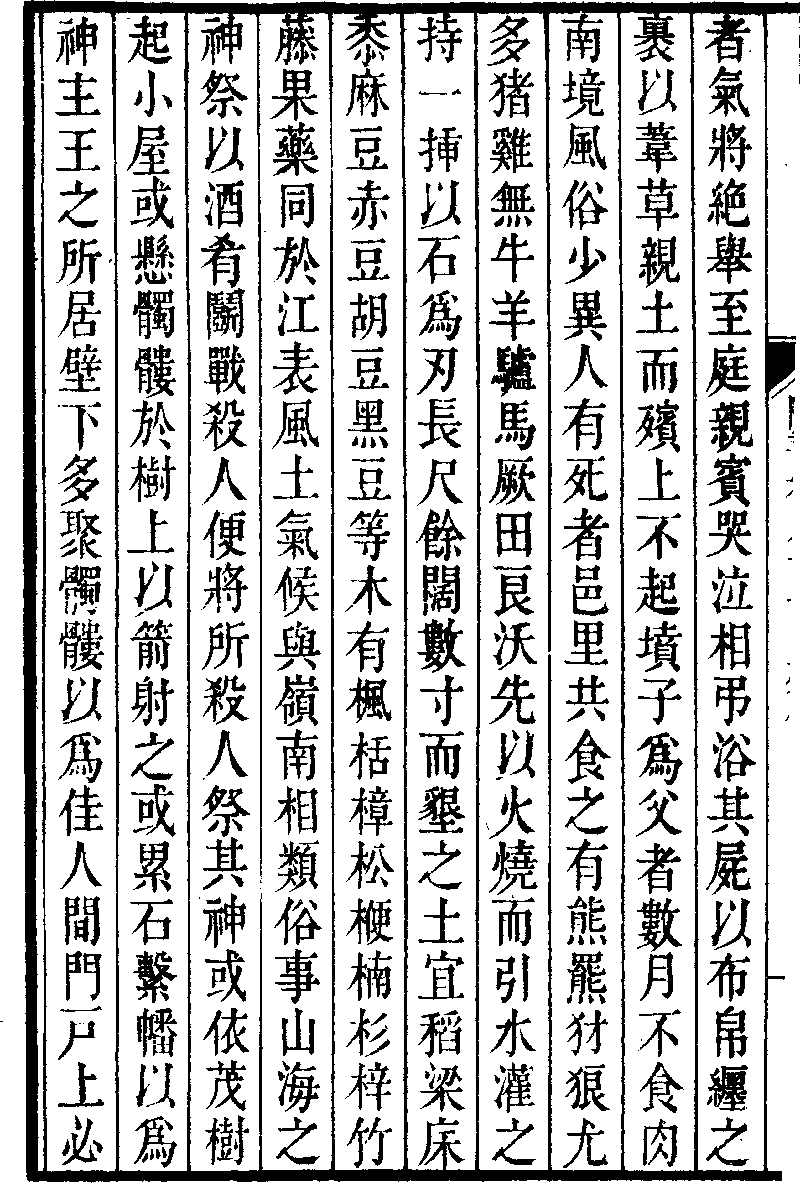 者氣將絶舉至庭親賓哭泣相弔浴其屍以布帛纒之
裹以葦草親土而殯上不起墳子爲父者數月不食肉
南境風俗少異人有死者邑里共食之有熊羆犲狼尤
多猪雞無牛羊驢馬厥田良沃先以火燒而引水灌之
持一揷以石爲刃長尺餘闊數寸而墾之土宜稻梁床
黍麻豆赤豆胡豆黑豆等木有楓栝樟松楩楠杉梓竹
藤果藥同於江表風土氣候與嶺南相類俗事山海之
神祭以酒肴鬭戰殺人便將所殺人祭其神或依茂樹
起小屋或懸髑髏於樹上以箭射之或累石繫幡以爲
神主王之所居壁下多聚髑髏以爲佳人間門戸上必